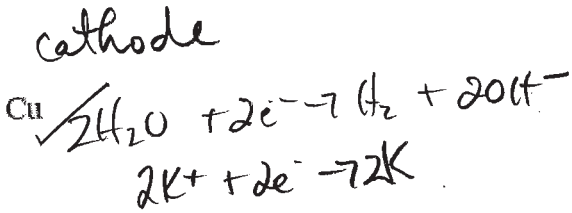 cathode
Cu ✓ 2H₂O + 2e⁻ → H₂ + 2OH⁻
2K⁺ + 2e⁻ → 2K